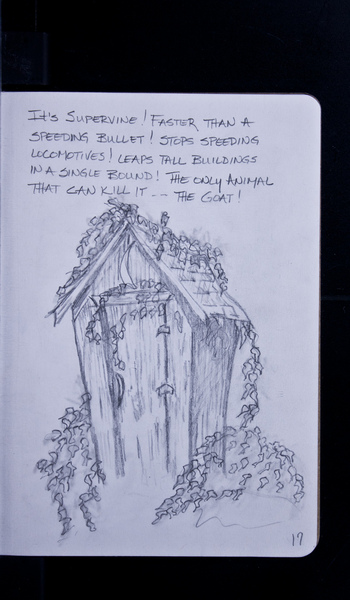 It's Supervine! Faster than a
speeding bullet! Stops speeding
locomotives! Leaps tall buildings
in a single bound! The only animal
that can kill it -- the goat!
17